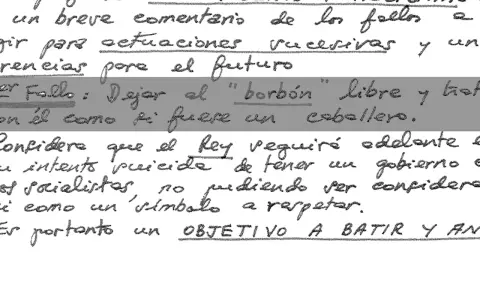 un breve comentario de los fallos a
gir para actuaciones sucesivas y un
rencias para el futuro
er Fallo: Dejar al "borbón" libre y trat
on él como si fuese un caballero.
Considero que el Rey seguirá adelante e
u intento suicida de tener un gobierno c
os socialistas, no pudiendo ser considera
i como un símbolo a respetar.
Es portanto un OBJETIVO A BATIR Y AN